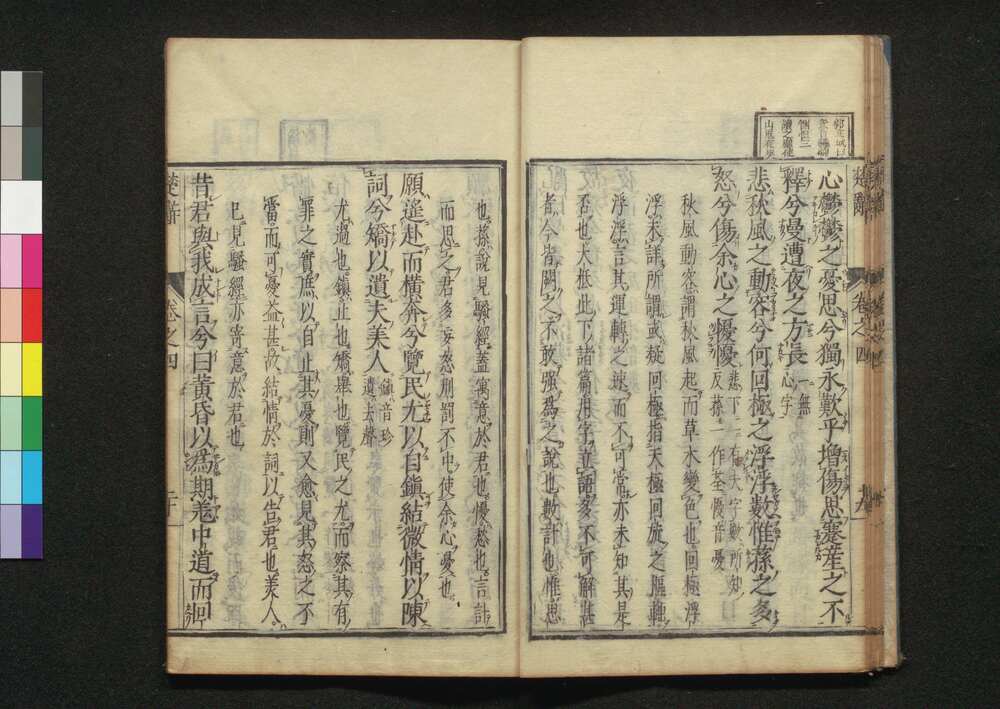 心鬱鬱之憂思兮獨永歎乎增傷思蹇產之不
釋兮曼遭夜之方長一無心字
悲秋風之動容兮何回極之浮浮數惟蓀之多
怒兮傷余心之懮懮悲下一有夫字數所知反蓀一作荃懮音憂
秋風動容謂秋風起而草木變色也回極浮
浮未詳所謂或疑回極指天極回旋之樞軸
浮浮言其運轉之速而不可常亦未知其是
否也大抵此下諸篇用字立語多不可解甚
者今皆闕之不敢強爲之說也數計也惟思
楚辭
卷之四
也蓀說見騷經蓋寓意於君也懮愁也言計
而思之君多妄怒刑罰不中使余心憂也
願遥赴而橫奔兮覽民尤以自鎭結微情以陳
詞兮矯以遺夫美人鎭音珍遺去聲
尤過也鎭止也矯舉也覽民之尤而察其有
罪之實爲以自止其憂則又愈見其怒之不
當而可憂益甚故結情於詞以告君也美人
已見騷經亦寄意於君也
昔君與我成言兮曰黃昏以爲期羌中道而回
楚辭
卷之四
二十